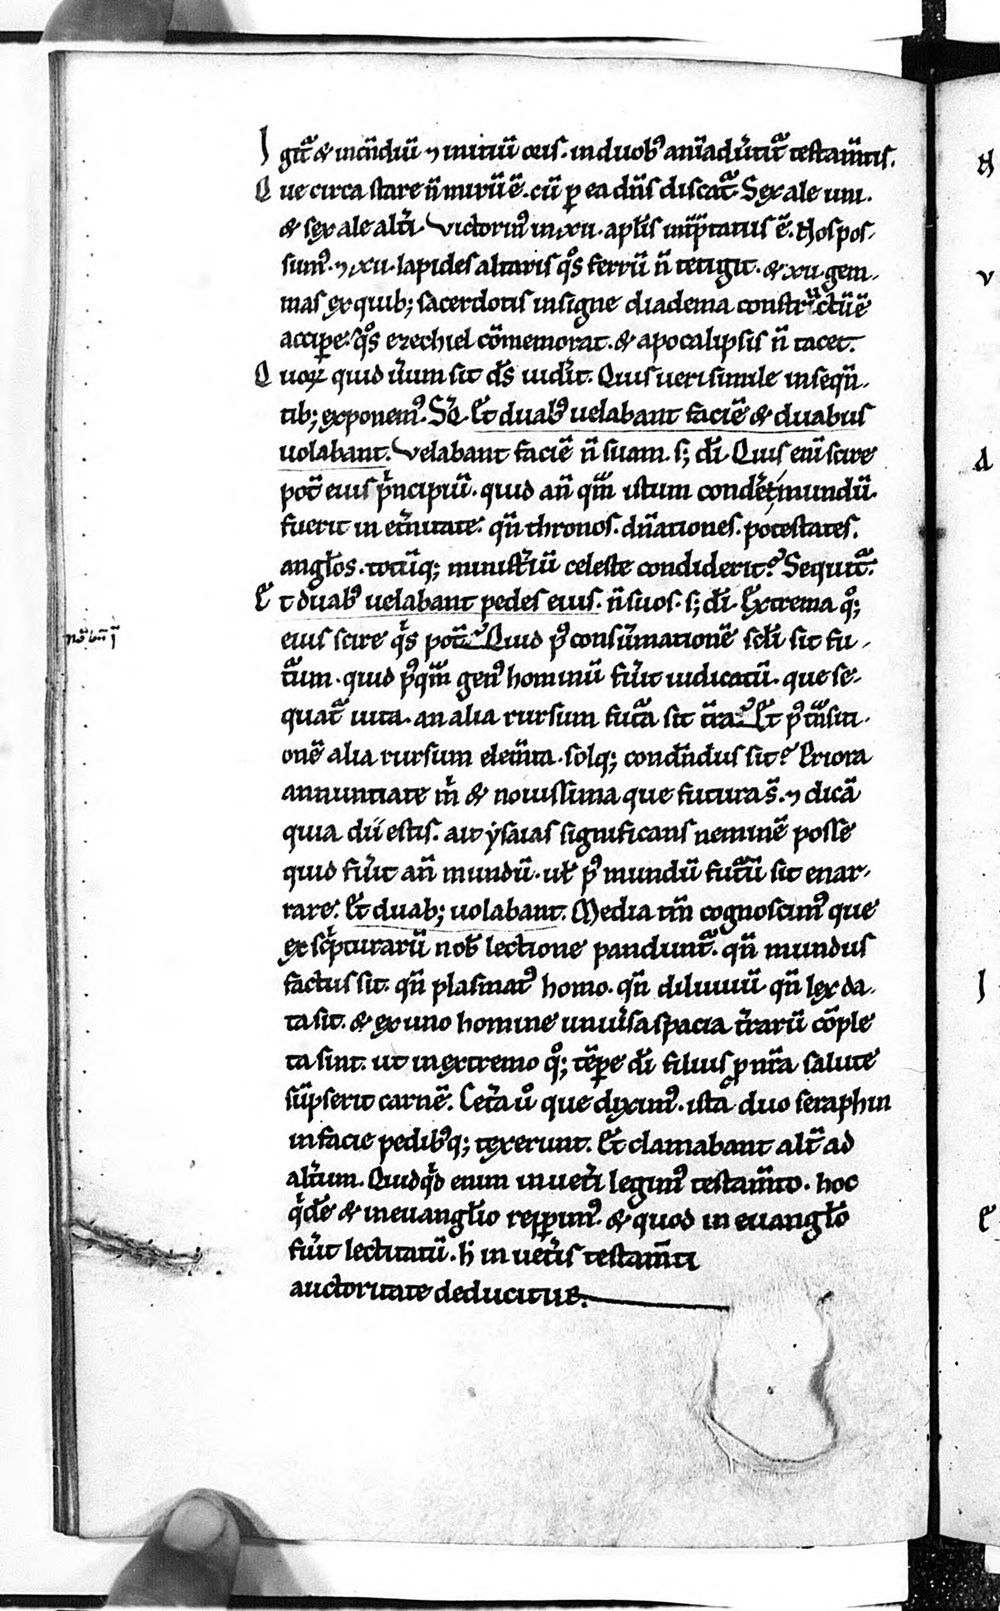 Igit᷑ ⁊ incendiū ⁊ initiū oris. in duob᷒ aīadu̓tit᷑ testam̄tis.
Que circa stare n̄ mirū ē. cū p̱ ea dn̄s discat᷑. Sex ale uni.
⁊ sex ale alt̓i. Victorin᷒ in .xii. apl̓is int̓p̱tatus ē. Nos pos-
sum᷒. ⁊ .xii. lapides altaris q̊s ferrū n̄ tetigit. ⁊ .xii. gem-
mas ex quib; sacerdotis insigne diadema constructū ē
accip̱e. q̊s ezechiel cōmemorat. ⁊ apocalipsis n̄ tacet.
Quoꝝ quid u̓um sit d̄s uid̓it. Quis uerisimile in seq̄n-
tib; exponem᷒. Et duab᷒ uelabant faciē ⁊ duabus
uolabant. Velabant faciē n̄ suam. s; d̓i. Quis enī scire
pot̄ eius p̓ncipiū. quid an̄ q̄m istum cond̓et mundū.
fuerit in et̓nitate. qn̄ thronos. dn̄ationes. potestates.
angl̓os. totūq; minist̓iū celeste condiderit? Sequit᷑.
Et duab᷒ uelabant pedes eius. n̄ suos. s; d̓i. Extrema q̊;
eius scire q̓s pot̄? Quid p᷒ consūmationē sc̓li sit fu-
t᷑um. quid p᷒q̄m gen᷒ hominū fu̓it iudicatū. que se-
quat᷑ uita. an alia rursum fut᷑a sit t̄ra? Et p᷒ t᷑nsiti-
onē alia rursum elem̄ta. solq; condn̄dus sit? Priora
annuntiate m̓ ⁊ nouissima que futura s̄. ⁊ dicā
quia dii estis. ait ysaias significans neminē posse
quid fu̓it an̄ mundū. ul̓ p᷒ mundū fut᷑ū sit enar-
rare. Et duab; uolabant. Media tm̄ cognoscim᷒ que
ex sc̓pturarū nob̓ lectione pandunt᷑. qn̄ mundus
factus sit. qn̄ plasmat᷒ homo. qn̄ diluuiū. qn̄ lex da-
ta sit. ⁊ ex uno homine uniu̓sa spacia t̓rarū cōple
ta sint. ut in extremo q̊; tēp̱e d̓i filius ꝓ nr̄a salute
sūpserit carnē. Cet̓a ů que dixim᷒. ista duo seraphin
in facie pedib᷒q; texerunt. Et clamabant alt̄ ad
alt̓um. Quidq̓d enim in uet̓i legim᷒ testam̄to. hoc
q̓dē ⁊ in euangl̓io rep̱p̱im᷒. ⁊ quod in euangl̓io
fu̓it lectitatū. h̓ in uet̓is testam̄ti
auctoritate deducitur.